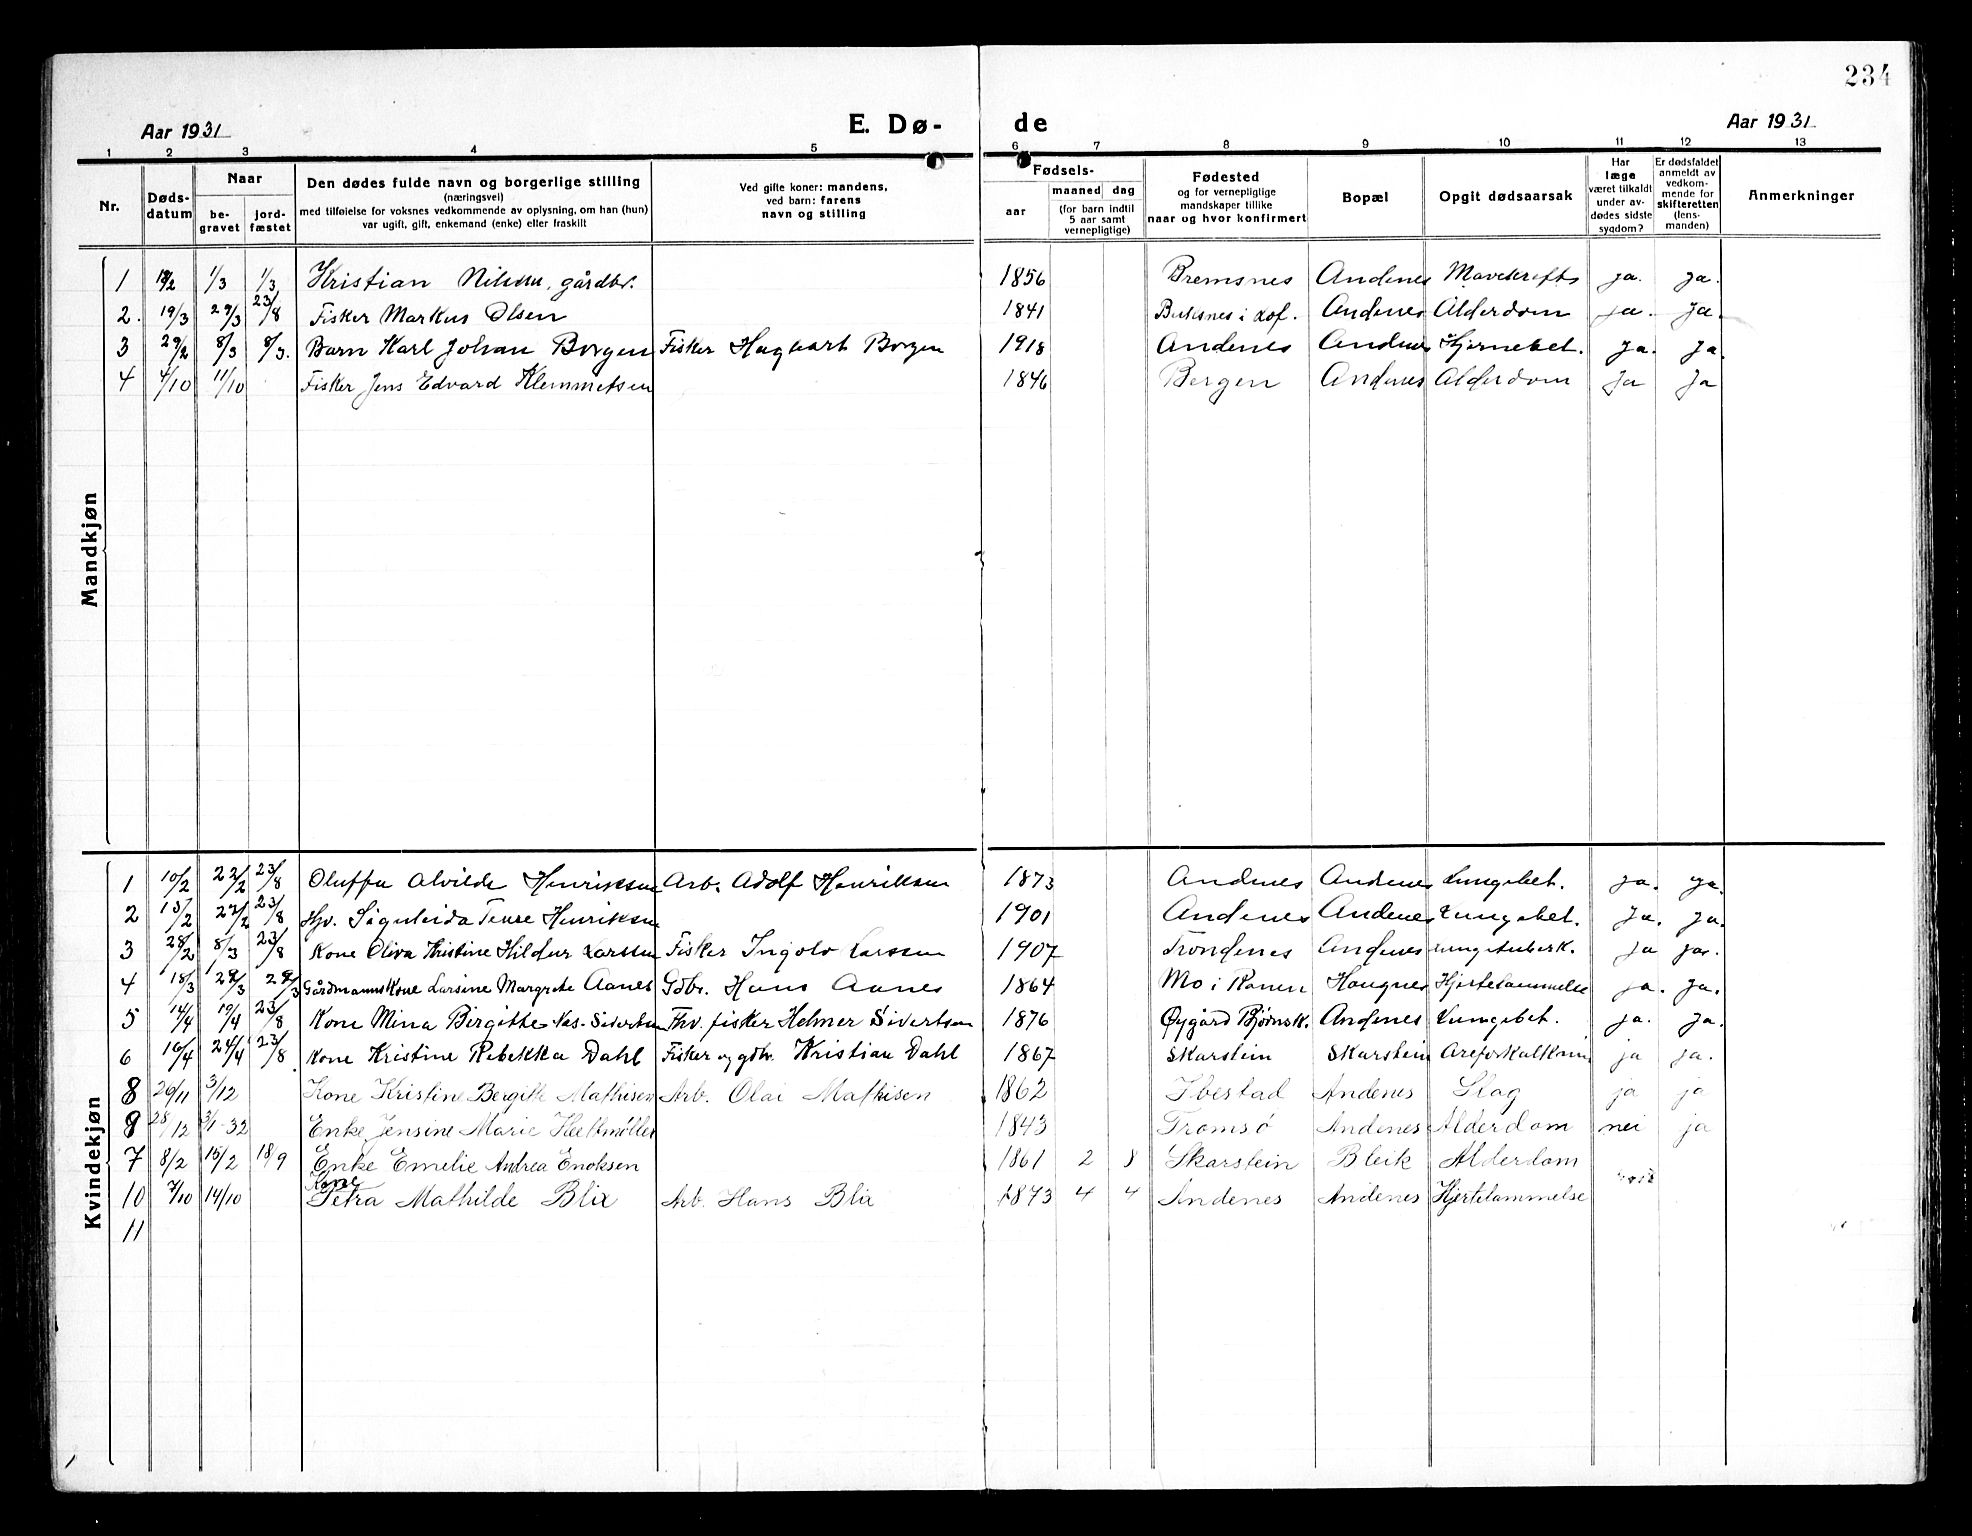 234
Aar 1931 E. Dø- de Aar 1931
1 2 3 4 5 6 7 8 9 10 11 12 13
Nr. Døds-datum Naar be-gravet jord-fæstet Den dødes fulde navn og borgerlige stilling (næringsvei) med tilføielse for voksnes vedkommende av oplysning, om han (hun) var ugift, gift, enkemand (enke) eller fraskilt Ved gifte koner: mandens, ved barn: farens navn og stilling Fødsels- aar maaned dag (for barn indtil 5 aar samt vernepligtige) Fødested og for vernepligtige mandskaper tillike naar og hvor konfirmert Bopæl Opgit dødsaarsak Har læge været tilkaldt under av-dødes sidste sygdom? Er dødsfaldet anmeldt av vedkom-mende for skifteretten (lens-manden) Anmerkninger
Mandkjøn
1 1/3 1/3 Kristian Nilsen, gårdbr. 1856 Bremsnes Andenes Mavekreft ja. ja.
2. 19/3 29/3 23/8 Fisker Markus Olsen 1841 Buksnes i Lof. Andenes Alderdom ja. ja.
3 29/2 8/3 8/3. Barn Karl Johan Borgen Fisker Hagbart Borgen 1918 Andenes Andenes Hjernebet. ja. ja.
4 4/10 11/10 Fisker Jens Edvard Klemmetsen 1846 Bergen Andenes Alderdom ja ja
Kvindekjøn
1 10/2 22/2 23/8 Oluffa Alvilde Henriksen Arb. Adolf Henriksen 1873 Andenes Andenes Lungebet. ja. ja.
2 22/2 23/8 Hjv. Henriksen 1901 Andenes Andenes Lungebet. ja. ja.
3 28/2 8/3 23/8 Kone Oliva Kristine Hildur Larssen Fisker Ingolv Larssen 1907 Trondenes Andenes Lungetuberk. ja ja.
4 18/3 29/3 29/3 Gårdmannskone Larsine Margrete Aanes Gdbr. Hans Aanes 1864 Mo i Ranen Haugnes Hjertelammelse ja. ja.
5 14/4 19/4 23/8 Kone Mina Bergitte Nes-Sivertsen Fhv. fisker Helmer Sivertsen 1876 Øygård Bjørnsk. Andenes Lungebet. ja. ja.
6 16/4 24/4 23/8 Kone Kristine Rebekka Dahl Fisker og gdbr. Kristian Dahl 1867 Skarstein Skarstein Areforkalkning ja ja.
8 26/11 3/12 Kone Kristin Bergitte Mathisen Arb. Olai Mathisen 1862 Ibestad Andenes Slag ja ja
9 28/12 3/1-32 Enke Jensine Marie 1843 Tromsø Andenes Alderdom nei ja
7 8/2 15/2 18/9 Enke Emelie Andrea Enoksen 1861 2 8 Skarstein Bleik Alderdom
10 7/10 14/10 Kone Petra Mathilde Blix Arb. Hans Blix 1873 4 4 Andenes Andenes Hjertelammelse
11